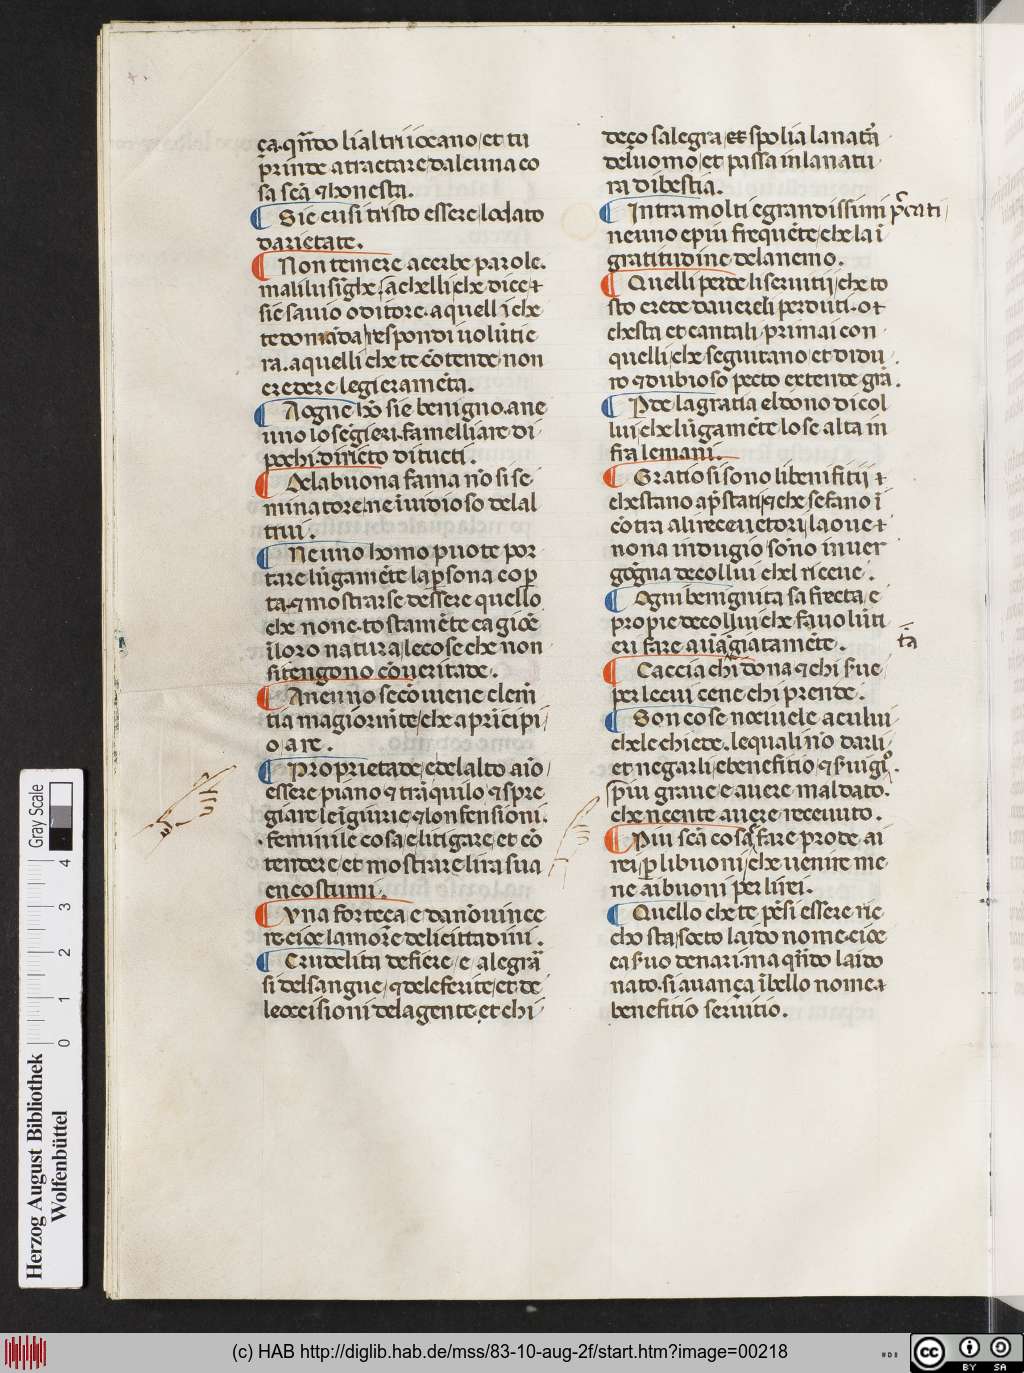 ça·qñdo li altri iocano/et tu
prinde a tractare dalcuna co
sa scā ⁊ honesta.
Sie cusi tristo essere lodato
da rietate.
Non temere acerbe parole.
te domāda/respondi uolūtie
ra.a quelli che te cōtende/non
credere legieramēta.
A ogne hō sie benigno.a ne
uno losēgieri.famelliare di
pochi.diricto di tucti.
De la buona fama nō si se
minatore/ne īuidioso del al
trui.
Neuno homo puote por
tare lūgamēte la psona cop
ta·⁊ mostrarse dessere quello
che none·tostamēte cagiōe
ī loro natura/le cose che non
si tengono cō ueritade.
A neuno se cōuiene clemē
tia magiormēte/che a prīcipi
o/a re.
Proprietade/e del alto aīo/
essere piano ⁊ trāquilo/⁊ spre
giare le īgiurie/⁊ lonfensioni.
feminile cosa e litigare/et cō
tendere/et mostrare lira sua
en costumi.
Vna forteça e da nō uince
re·cioe lamore de li cittadini.
Crudelita de fiere/e/alegrā
si del sangue/⁊ de le ferite/et de
le occisioni de la gente·et chi
deço salegra/et spolia la natā
de luomo/et passa in la natu
ra di bestia.
Intra molti e grandissimi pēcati
neuno e piu frequēte/che la ī
gratitudine de lanemo.
Quelli perde li seruitii/che to
sto crede dauereli perduti·
quelli/che seguitano/et di du
ro ⁊ dubioso pecto extende grā.
Pde la gratia el dono di col
lui/che lūgamēte lo se alta in
fra le mani.
Gratiosi sono li benifitii
che stano apstati/⁊ che se fano ī
cōtra a li receuetori/la oue
nona indugio/sono in uer
gogna de collui che l riceue.
Ogni benignita sa frecta/e
propie de collui/che fa uolūti
eri fare auāgiatamēte.
tā
Caccia chi dona ⁊ chi sue
per lecui cene chi prende.
Son cose nociuele a cului
che le chiede.le quali nō darli/
et negarli/e benefitio
piu graue e auere mal dato.
che neente auere receuuto.
Piu scā cosa fare prode a i
rei/p li buoni/che uenire me
ne ai buoni per li rei.
Quello che te pēsi essere ric
cho sta/socto laido nome·cioe
ca suo denari·ma qñdo laido
nato·si auança ī bello nome
benefitio seruitio.
Gray Scale
0 1 2 3 4
Herzog August Bibliothek
Wolfenbüttel
(c) HAB http://diglib.hab.de/mss/83-10-aug-2f/start.htm?image=00218
cc BY SA